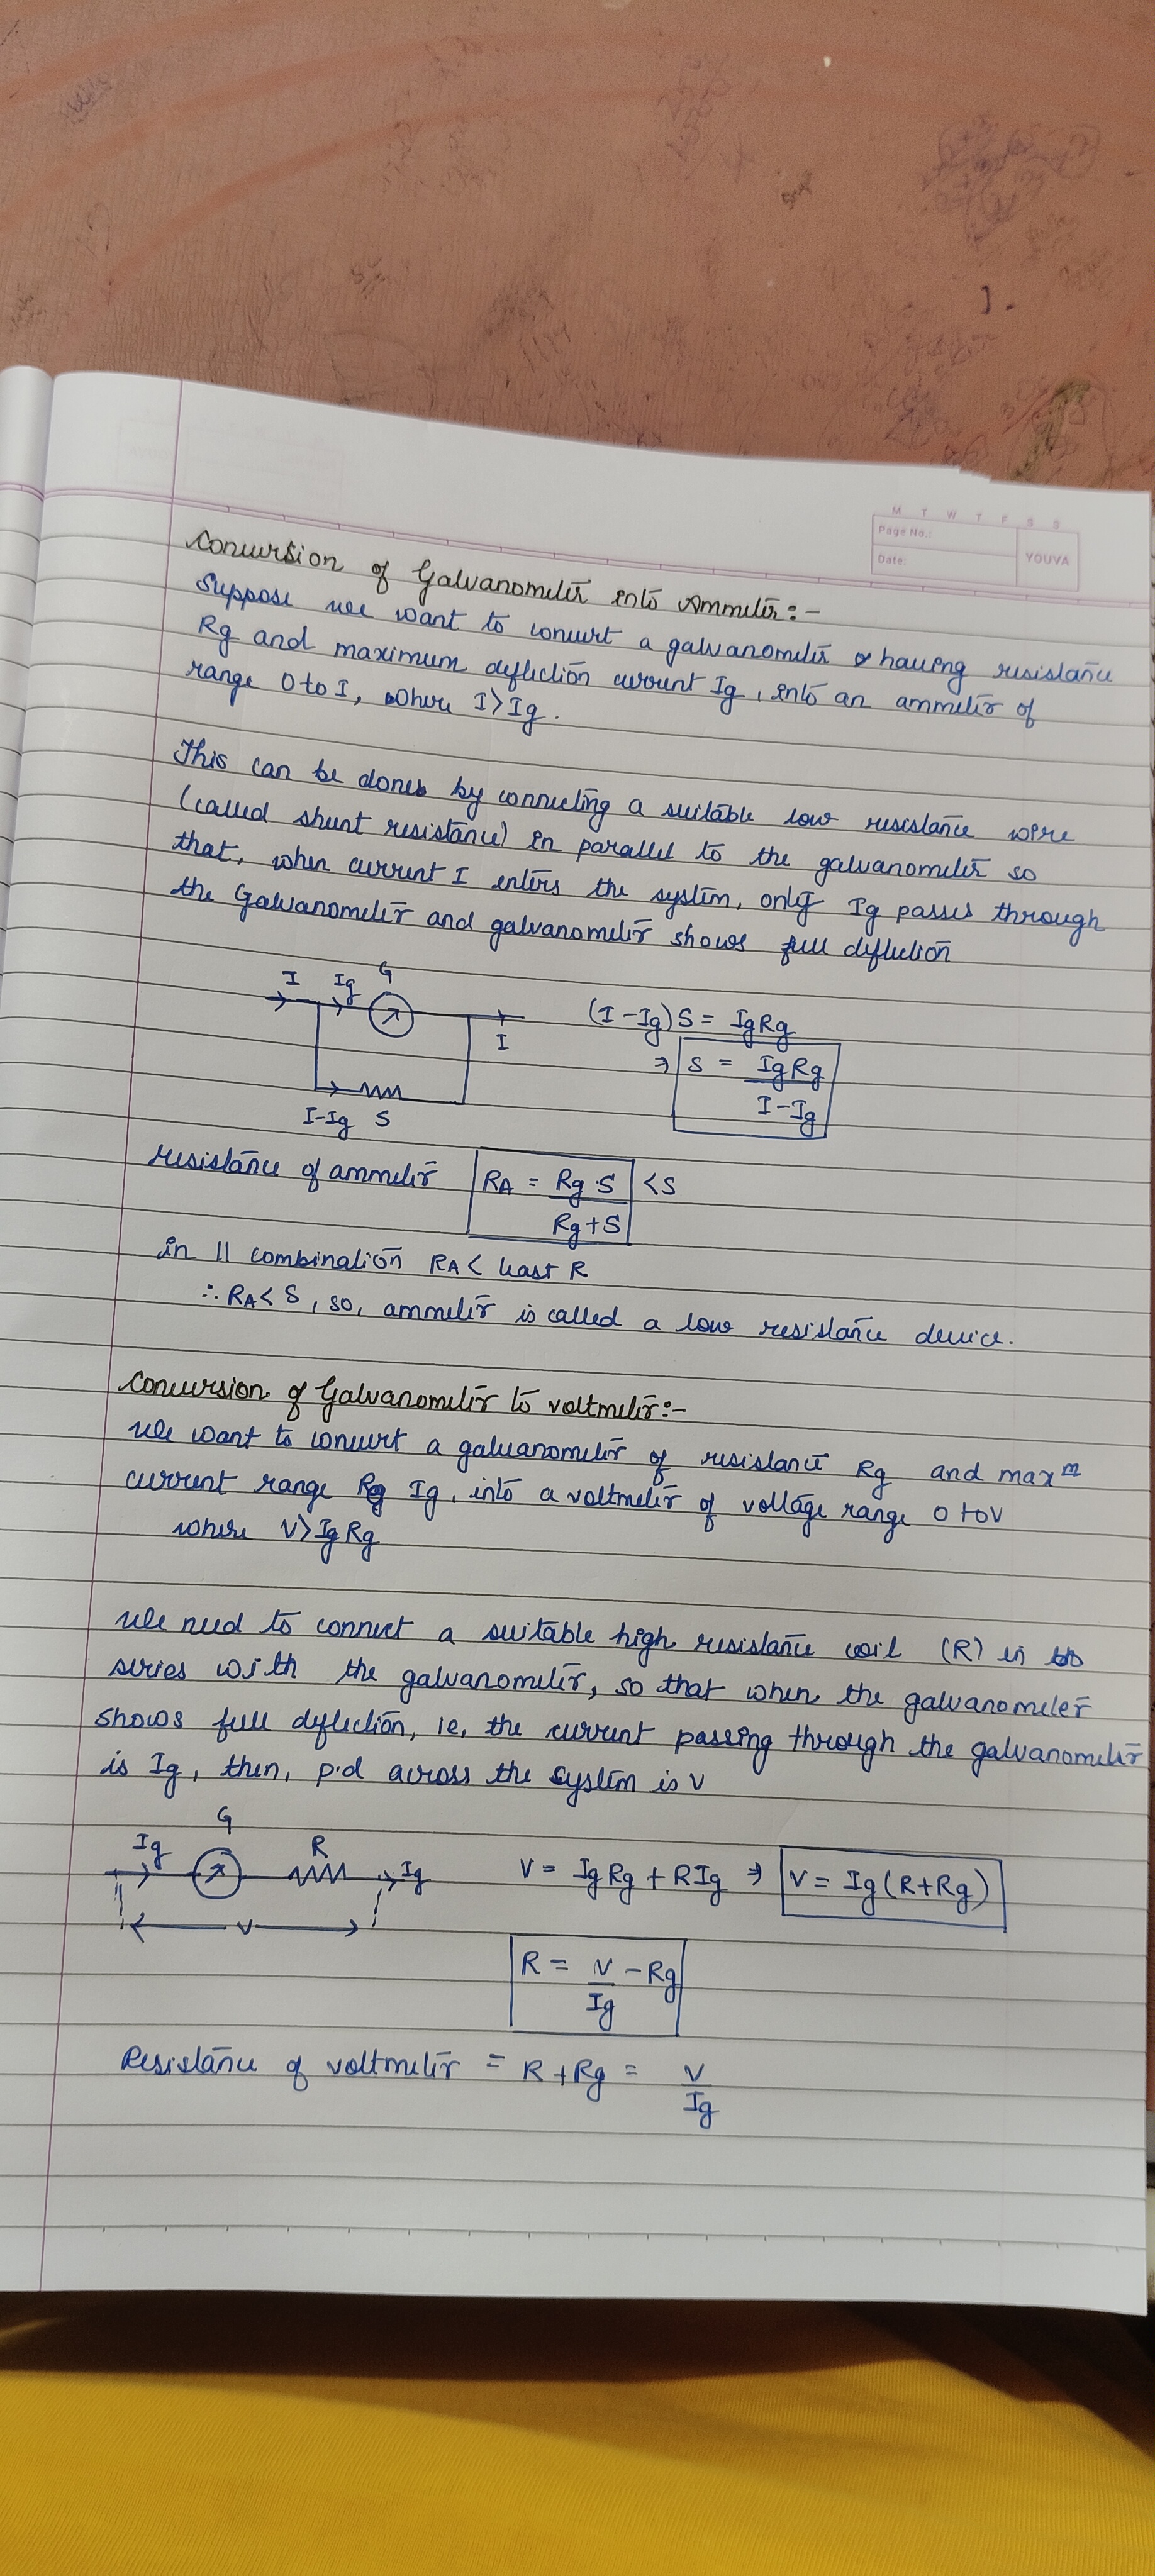 M T W T F S S
Page No.:
Date:
YOUVA
Conversion of Galvanometer into Ammeter:-
Suppose we want to convert a galvanometer having resistance
Rg and maximum deflection current Ig, into an ammeter of
range 0 to I, where I>Ig.
This can be done by connecting a suitable low resistance wire
(called shunt resistance) in parallel to the galvanometer so
that, when current I enters the system, only Ig passes through
the Galvanometer and galvanometer shows full deflection
I Ig G
I
I-Ig S
(I-Ig)S = IgRg
⇒ S = IgRg
I-Ig
resistance of ammeter RA = Rg·S <S
Rg+S
in || combination RA< least R
∴ RA< S, so, ammeter is called a low resistance device.
Conversion of Galvanometer to voltmeter:-
We want to convert a galvanometer of resistance Rg and maxᵐ
current range Ig, into a voltmeter of voltage range 0 to V
where V>IgRg
We need to connect a suitable high resistance coil (R) in
series with the galvanometer, so that when the galvanometer
shows full deflection, ie, the current passing through the galvanometer
is Ig, then, p.d across the system is V
Ig G R Ig
V
V = IgRg + RIg ⇒ V = Ig(R+Rg)
R = V - Rg
Ig
Resistance of voltmeter = R+Rg = V
Ig